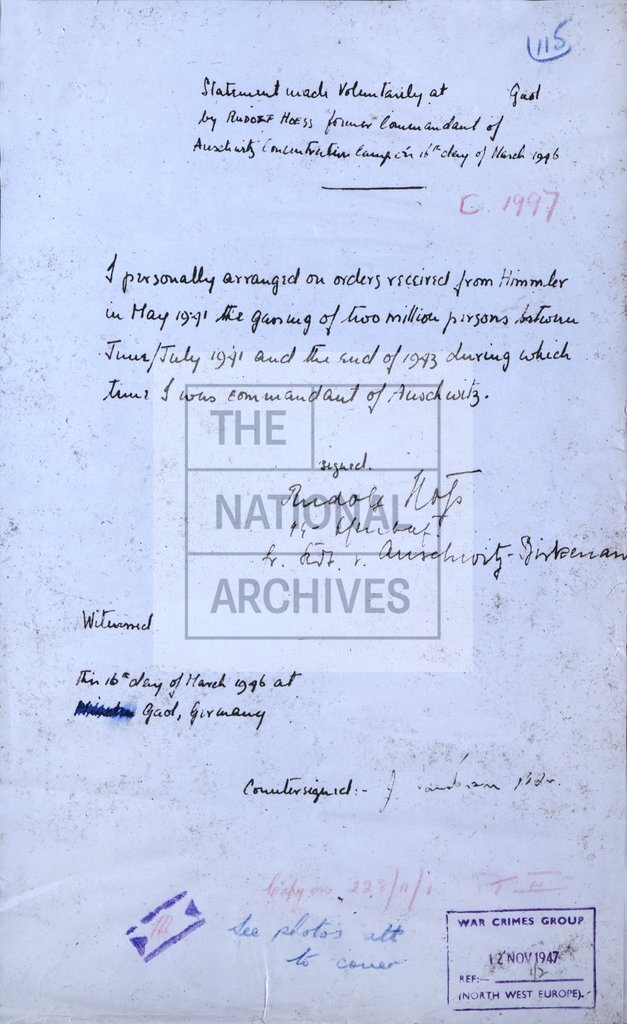 115
Statement made voluntarily at Gaol
by RUDOLF HOESS former Commandant of
Auschwitz Concentration Camp on 16th day of March 1946
C. 1997
I personally arranged on orders received from Himmler
in May 1941 the gassing of two million persons between
June/July 1941 and the end of 1943 during which
time I was commandant of Auschwitz.
signed.
Rudolf Höß
SS-
Auschwitz-Birkenau
Witnessed
This 16th day of March 1946 at
Gaol, Germany
Countersigned:-
Copy on 228/11/1
See photos att
to cover
WAR CRIMES GROUP
12 NOV 1947
REF:-
(NORTH WEST EUROPE).
THE
NATIONAL
ARCHIVES